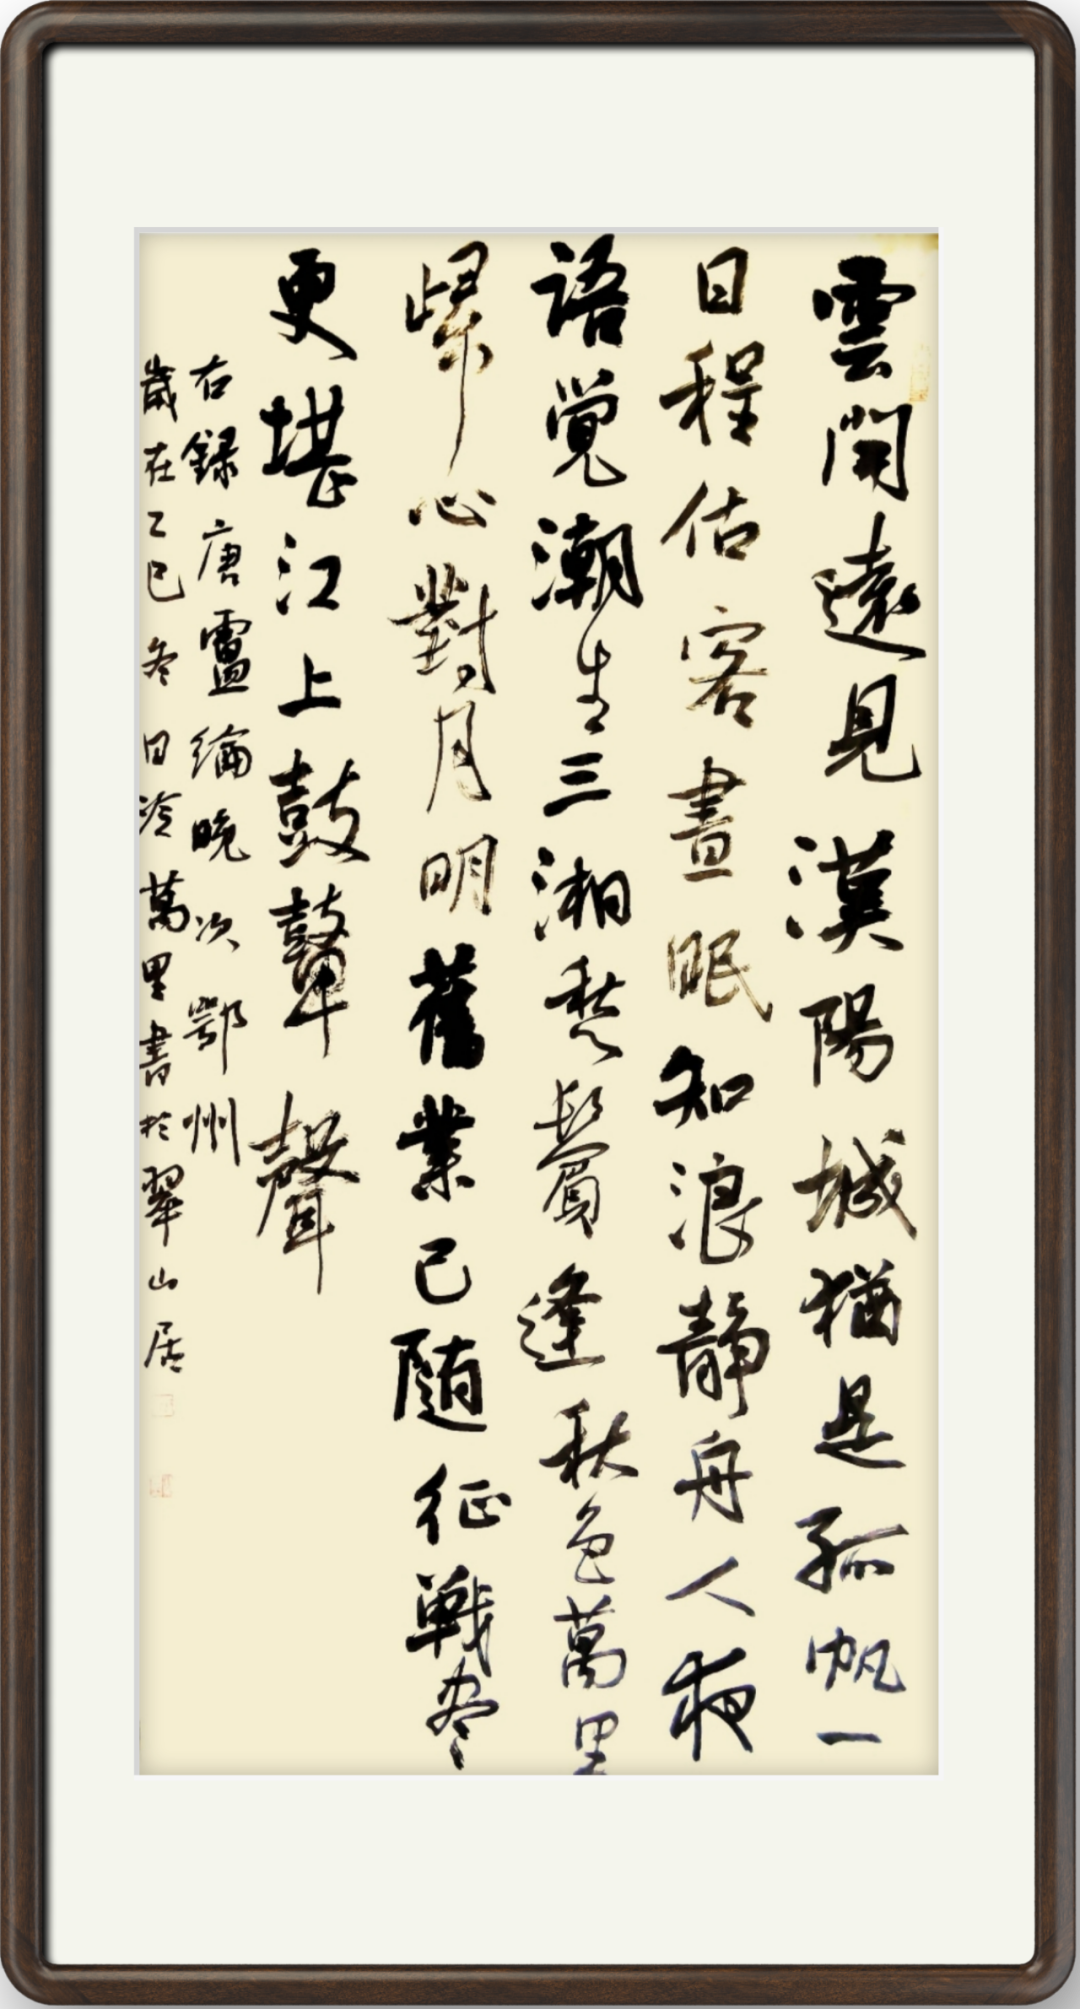 雲開遠見漢陽城猶是孤帆一
日程估客晝眠知浪靜舟人夜
語覚潮生三湘愁鬢逢秋色萬里
歸心對月明舊業已隨征戰尽
更堪江上鼓鼙聲
右録唐盧綸晚次鄂州
歲在乙巳冬日冷萬里書於翠山居